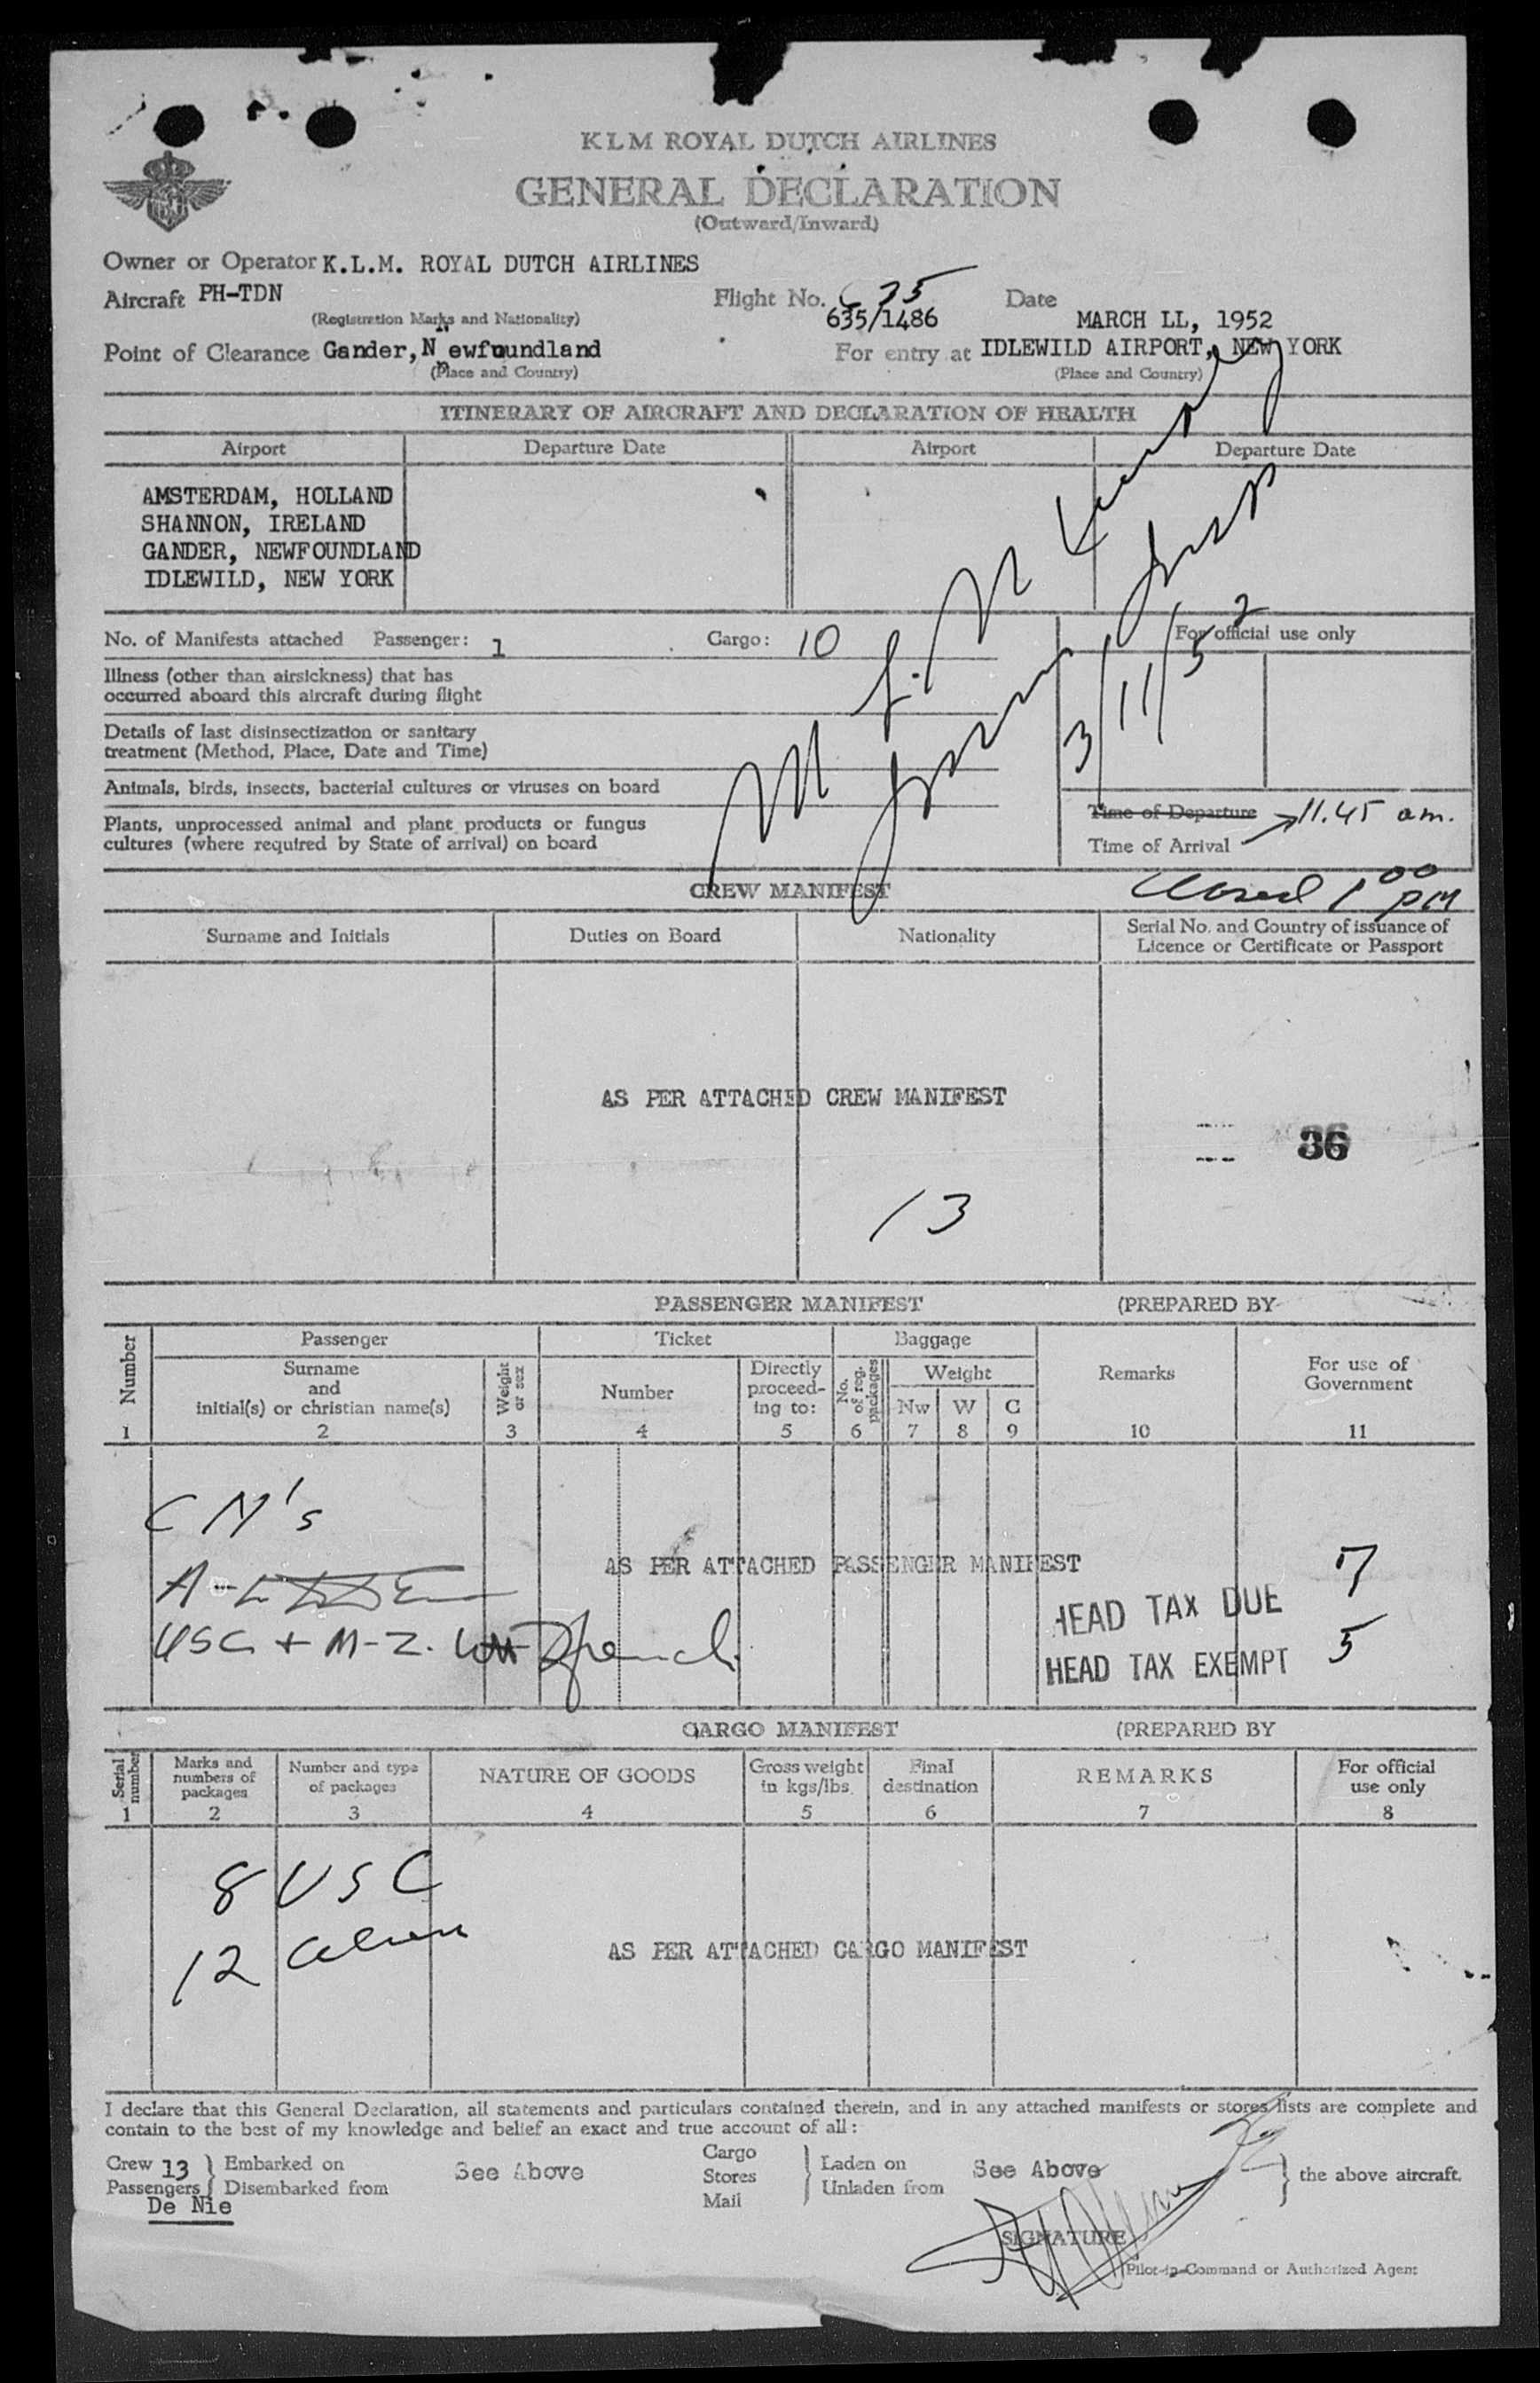 KLM ROYAL DUTCH AIRLINES
GENERAL DECLARATION
(Outward/Inward)
Owner or Operator K.L.M. ROYAL DUTCH AIRLINES
Aircraft PH-TDN Flight No. 635/1486 Date MARCH LL, 1952
(Registration Marks and Nationality)
Point of Clearance Gander, Newfoundland For entry at IDLEWILD AIRPORT, NEW YORK
(Place and Country) (Place and Country)
ITINERARY OF AIRCRAFT AND DECLARATION OF HEALTH
Airport Departure Date Airport Departure Date
AMSTERDAM, HOLLAND
SHANNON, IRELAND
GANDER, NEWFOUNDLAND
IDLEWILD, NEW YORK
No. of Manifests attached Passenger: 1 Cargo: 10 For official use only
3/11/52
Illness (other than airsickness) that has
occurred aboard this aircraft during flight
Details of last disinsectization or sanitary
treatment (Method, Place, Date and Time)
Animals, birds, insects, bacterial cultures or viruses on board
Plants, unprocessed animal and plant products or fungus
cultures (where required by State of arrival) on board
Time of Departure 11.45 am.
Time of Arrival
CREW MANIFEST
Closed 1 00 PM
Surname and Initials Duties on Board Nationality Serial No. and Country of issuance of
Licence or Certificate or Passport
AS PER ATTACHED CREW MANIFEST
36
13
PASSENGER MANIFEST (PREPARED BY
Number Passenger Ticket Baggage Remarks For use of
Government
Surname
and
initial(s) or christian name(s) Weight
or sex Number Directly
proceed-
ing to: No.
of reg.
packages Weight
Nw W C
1 2 3 4 5 6 7 8 9 10 11
CM's
AS PER ATTACHED PASSENGER MANIFEST
HEAD TAX DUE 7
USC + M-Z.
HEAD TAX EXEMPT 5
CARGO MANIFEST (PREPARED BY
Serial
number Marks and
numbers of
packages Number and type
of packages NATURE OF GOODS Gross weight
in kgs/lbs. Final
destination REMARKS For official
use only
1 2 3 4 5 6 7 8
8 USC
12 alien
AS PER ATTACHED CARGO MANIFEST
I declare that this General Declaration, all statements and particulars contained therein, and in any attached manifests or stores lists are complete and
contain to the best of my knowledge and belief an exact and true account of all:
Crew 13 Embarked on See Above Cargo Laden on See Above the above aircraft.
Passengers Disembarked from Stores Unladen from
De Nie Mail
SIGNATURE
Pilot-in-Command or Authorized Agent